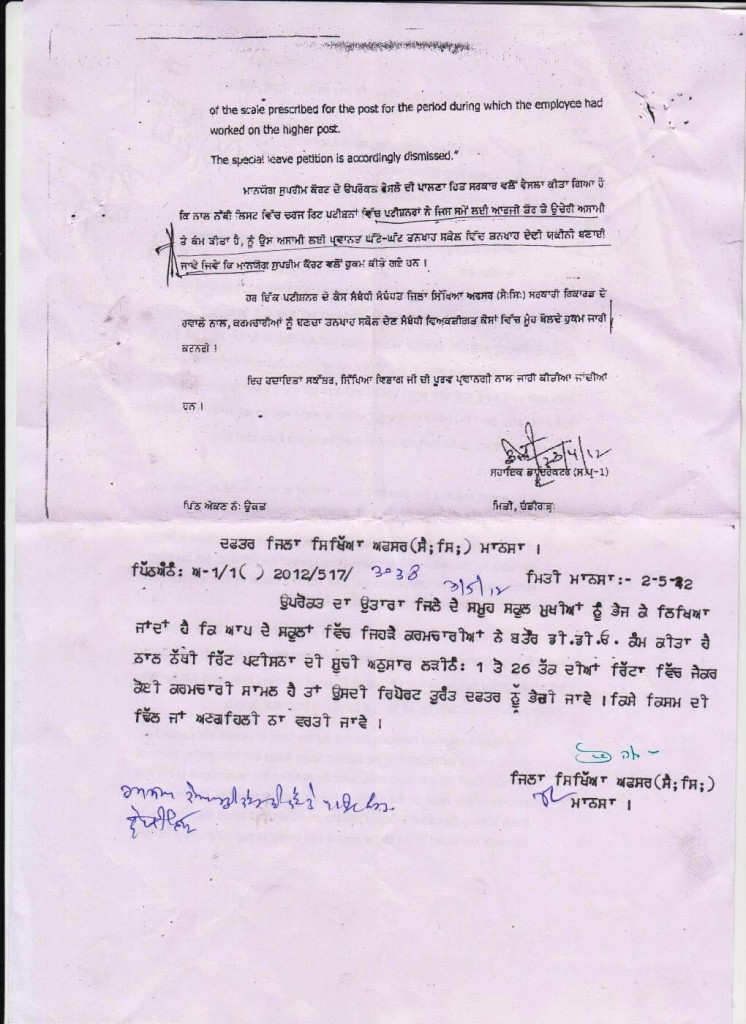 of the scale prescribed for the post for the period during which the employee had
worked on the higher post.
The special leave petition is accordingly dismissed."
ਮਾਨਯੋਗ ਸੁਪਰੀਮ ਕੋਰਟ ਦੇ ਉਪਰੋਕਤ ਫੈਸਲੇ ਦੀ ਪਾਲਣਾ ਹਿਤ ਸਰਕਾਰ ਵਲੋਂ ਫੈਸਲਾ ਕੀਤਾ ਗਿਆ ਹੈ
ਕਿ ਨਾਲ ਨੱਥੀ ਲਿਸਟ ਵਿੱਚ ਦਰਜ ਰਿਟ ਪਟੀਸ਼ਨਾਂ ਵਿੱਚ ਪਟੀਸ਼ਨਰਾਂ ਨੇ ਜਿਸ ਸਮੇਂ ਲਈ ਆਰਜੀ ਤੌਰ ਤੇ ਉਚੇਰੀ ਅਸਾਮੀ
ਤੇ ਕੰਮ ਕੀਤਾ ਹੈ, ਨੂੰ ਉਸ ਅਸਾਮੀ ਲਈ ਪ੍ਰਵਾਨਤ ਘੱਟੋ-ਘੱਟ ਤਨਖਾਹ ਸਕੇਲ ਵਿੱਚ ਤਨਖਾਹ ਦੇਣੀ ਯਕੀਨੀ ਬਣਾਈ
ਜਾਵੇ ਜਿਵੇਂ ਕਿ ਮਾਨਯੋਗ ਸੁਪਰੀਮ ਕੋਰਟ ਵਲੋਂ ਹੁਕਮ ਕੀਤੇ ਗਏ ਹਨ ।
ਹਰ ਇੱਕ ਪਟੀਸ਼ਨਰ ਦੇ ਕੇਸ ਸੰਬੰਧੀ ਸੰਬੰਧਤ ਜਿਲ੍ਹਾ ਸਿੱਖਿਆ ਅਫਸਰ (ਸੈ:ਸਿ:) ਸਰਕਾਰੀ ਰਿਕਾਰਡ ਦੇ
ਹਵਾਲੇ ਨਾਲ, ਕਰਮਚਾਰੀਆਂ ਨੂੰ ਬਣਦਾ ਤਨਖਾਹ ਸਕੇਲ ਦੇਣ ਸੰਬੰਧੀ ਵਿਅਕਤੀਗਤ ਕੇਸਾਂ ਵਿੱਚ ਮੂੰਹ ਬੋਲਦੇ ਹੁਕਮ ਜਾਰੀ
ਕਰਨਗੇ ।
ਇਹ ਹਦਾਇਤਾਂ ਸਕੱਤਰ, ਸਿੱਖਿਆ ਵਿਭਾਗ ਜੀ ਦੀ ਪੂਰਵ ਪ੍ਰਵਾਨਗੀ ਨਾਲ ਜਾਰੀ ਕੀਤੀਆਂ ਜਾਂਦੀਆਂ
ਹਨ ।
23/4/12
ਸਹਾਇਕ ਡਾਇਰੈਕਟਰ (ਸ.ਪ੍ਰ-1)
ਪਿੱਠ ਅੰਕਣ ਨੰ: ਉਕਤ ਮਿਤੀ, ਚੰਡੀਗੜ੍ਹ:
ਦਫਤਰ ਜਿਲਾ ਸਿਖਿੱਆ ਅਫਸਰ(ਸੈ;ਸਿ;) ਮਾਨਸਾ ।
ਪਿੱਠਅੰਨੰ: ਅ-1/1( ) 2012/517/ 3038 3/5/12 ਮਿਤੀ ਮਾਨਸਾ:- 2-5-12
ਉਪਰੋਕਤ ਦਾ ਉਤਾਰਾ ਜਿਲੇ ਦੇ ਸਮੂਹ ਸਕੂਲ ਮੁਖੀਆਂ ਨੂੰ ਭੇਜ ਕੇ ਲਿਖਿਆ
ਜਾਂਦਾ ਹੈ ਕਿ ਆਪ ਦੇ ਸਕੂਲਾਂ ਵਿੱਚ ਜਿਹੜੇ ਕਰਮਚਾਰੀਆਂ ਨੇ ਬਤੌਰ ਡੀ.ਡੀ.ਓ. ਕੰਮ ਕੀਤਾ ਹੈ
ਨਾਲ ਨੱਥੀ ਰਿੱਟ ਪਟੀਸ਼ਨਾ ਦੀ ਸੂਚੀ ਅਨੁਸਾਰ ਲੜੀਨੰ: 1 ਤੋਂ 26 ਤੱਕ ਦੀਆਂ ਰਿੱਟਾ ਵਿੱਚ ਜੇਕਰ
ਕੋਈ ਕਰਮਚਾਰੀ ਸਾਮਲ ਹੈ ਤਾਂ ਉਸਦੀ ਰਿਪੋਰਟ ਤੁਰੰਤ ਦਫਤਰ ਨੂੰ ਭੇਜੀ ਜਾਵੇ ।ਕਿਸੇ ਕਿਸਮ ਦੀ
ਢਿੱਲ ਜਾਂ ਅਣਗਹਿਲੀ ਨਾ ਵਰਤੀ ਜਾਵੇ ।
ਜਿਲਾ ਸਿਖਿੱਆ ਅਫਸਰ(ਸੈ;ਸਿ;)
ਮਾਨਸਾ ।